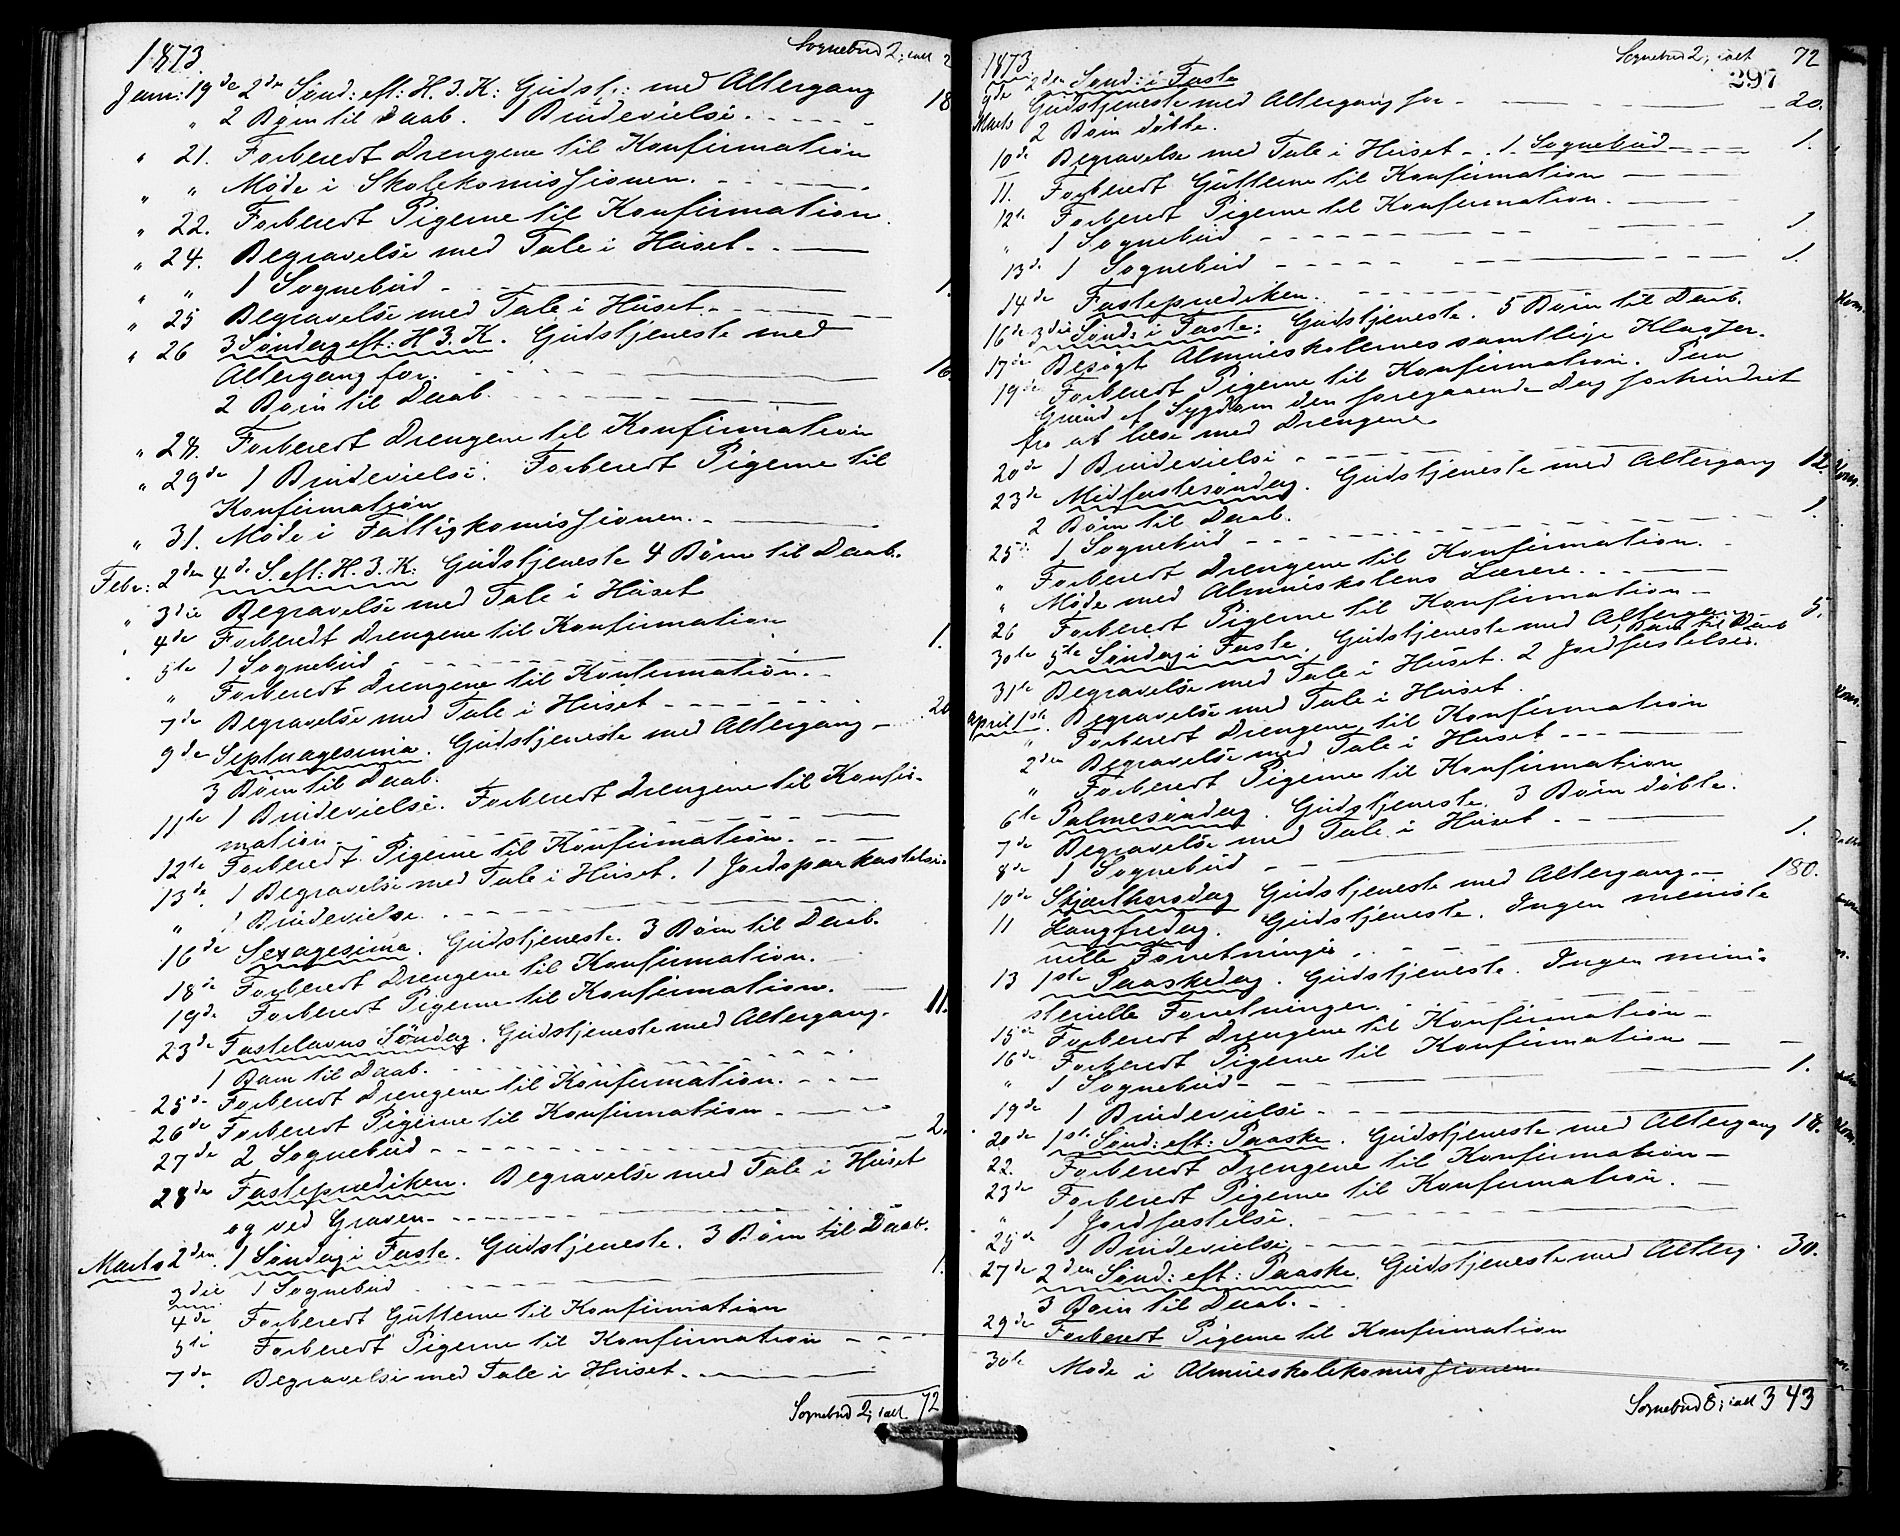 1873.
Sognebud 2; ialt 2
Janu: 19de 2den Sønd: eft: H. 3. K: Gudstj: med Altergang 18
" 2 Børn til Daab. 1 Brudevielse.
" 21. Forberedt Drengene til Konfirmation
" " Møde i Skolekomissionen.
" 22. Forberedt Pigerne til Konfirmation.
" 24. Begravelse med Tale i Huset.
" " 1 Sognebud 1.
" 25 Begravelse med Tale i Huset.
" 26 3 Søndag eft: H 3. K. Gudstjeneste med
Altergang for. 16.
2 Børn til Daab.
" 28. Forberedt Drengene til Konfirmation
" 29de 1 Brudevielse. Forberedt Pigerne til
Konfirmation
" 31. Møde i Fattigkomissionen.
Febr: 2den 4de S. eft: H. 3. K: Gudstjeneste 4 Børn til Daab.
" 3die Begravelse med Tale i Huset
" 4de Forberedt Drengene til Konfirmation
" 5te 1 Sognebud 1.
" Forberedt Drengene til Konfirmation.
7de Begravelse med Tale i Huset
9de Septuagesima. Gudstjeneste med Altergang 20
3 Børn til Daab.
11te 1 Brudevielse. Forberedt Drengene til Konfir-
mation
12te Forberedt Pigerne til Konfirmation.
13de 1 Begravelse med Tale i Huset. 1 Jordspaakastelse
" 1 Brudevielse.
16de Sexagesima. Gudstjeneste. 3 Børn til Daab.
18de Forberedt Drengene til Konfirmation.
19de Forberedt Pigerne til Konfirmation.
23de Fastelavns Søndag. Gudstjeneste med Altergang. 11.
1 Barn til Daab.
25de Forberedt Drengene til Konfirmation.
26de Forberedt Pigerne til Konfirmation
27de 2 Sognebud 2.
28de Fasteprædiken. Begravelse med Tale i Huset
og ved Graven
Marts 2den. 1 Søndag i Faste. Gudstjeneste. 3 Børn til Daab.
3die 1 Sognebud 1.
4de Forberedt Gutterne til Konfirmation
5te Forberedt Pigerne til Konfirmation
7de Begravelse med Tale i Huset.
Sognebud 2; ialt 72
1873
Sognebud 2; ialt 72
297
9de 2den Sønd: i Faste
Marts Gudstjeneste med Altergang for 20.
2 Børn döbte.
10de Begravelse med Tale i Huset. 1 Sognebud 1.
11. Forberedt Gutterne til Konfirmation
12te Forberedt Pigerne til Konfirmation.
" 1 Sognebud 1
13de 1 Sognebud 1.
14de Fasteprædiken.
16de 3die Sønd: i Faste: Gudstjeneste. 5 Børn til Daab.
17de Besøgt Almueskolernes samtlige Klasser.
19de Forberedt Pigerne til Konfirmation. Paa
Grund af Sygdom den foregaaende Dag forhindret
fra at læse med Drengene
20de 1 Brudevielse
23de Midfastesøndag. Gudstjeneste med Altergang 12.
2 Børn til Daab.
25de 1 Sognebud 1.
" Forberedt Drengene til Konfirmation.
" Møde med Almueskolens Lærere.
26 Forberedt Pigerne til Konfirmation
30te 5te Søndag i Faste. Gudstjeneste med Alterga 5.
1 Barn til Daab
31te Begravelse med Tale i Huset. 2 Jordfæstelser.
April 1ste. Begravelse med Tale i Huset.
" Forberedt Drengene til Konfirmation
2den Begravelse med Tale i Huset
" Forberedt Pigerne til Konfirmation
6te Palmesøndag. Gudstjeneste. 3 Børn döbte.
7de Begravelse med Tale i Huset
8de 1 Sognebud 1.
10de Skjærthorsdag Gudstjeneste med Altergang 180.
11 Langfredag. Gudstjeneste. Ingen meniste
rielle Forretninger
13 1ste Paaskedag. Gudstjeneste. Ingen mini-
sterielle Forretninger.
15de Forberedt Drengene til Konfirmation
16de Forberedt Pigerne til Konfirmation
" 1 Sognebud 1.
19de 1 Brudevielse
20de 1ste Sønd: eft: Paaske. Gudstjeneste med Altergang 18.
22. Forberedt Drengene til Konfirmation
23de Forberedt Pigerne til Konfirmation.
" 1 Jordfæstelse.
25de 1 Brudevielse
27de 2den Sønd: eft: Paaske. Gudstjeneste med Alterg. 30.
3 Børn til Daab.
29de Forberedt Pigerne til Konfirmation
30te Møde i Almueskolekomissionen
Sognebud 8; ialt 343